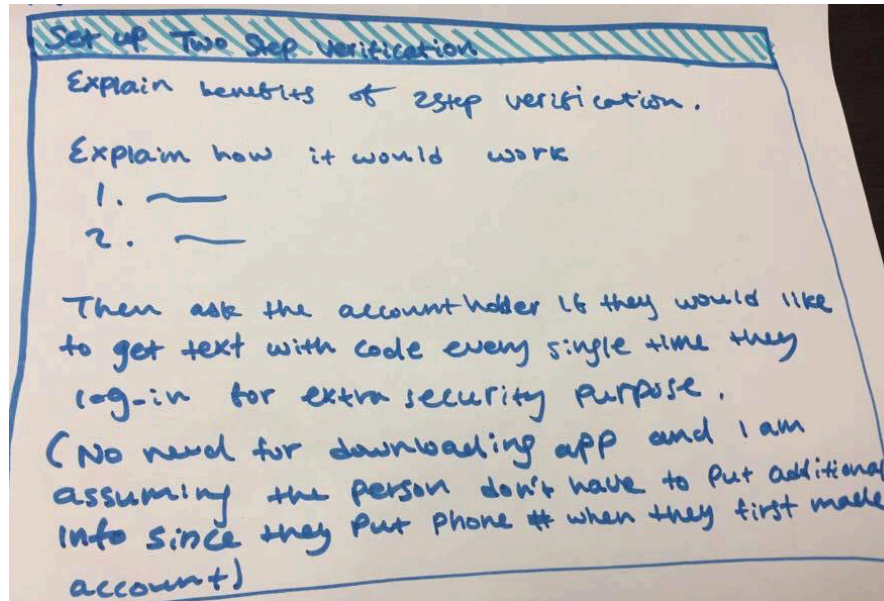 Set up Two Step Verification
Explain benefits of 2step verification.
Explain how it would work
1.
2.
Then ask the accountholder if they would like
to get text with code every single time they
log-in for extra security purpose.
(No need for downloading app and I am
assuming the person don't have to put additional
info since they put phone # when they first made
account)